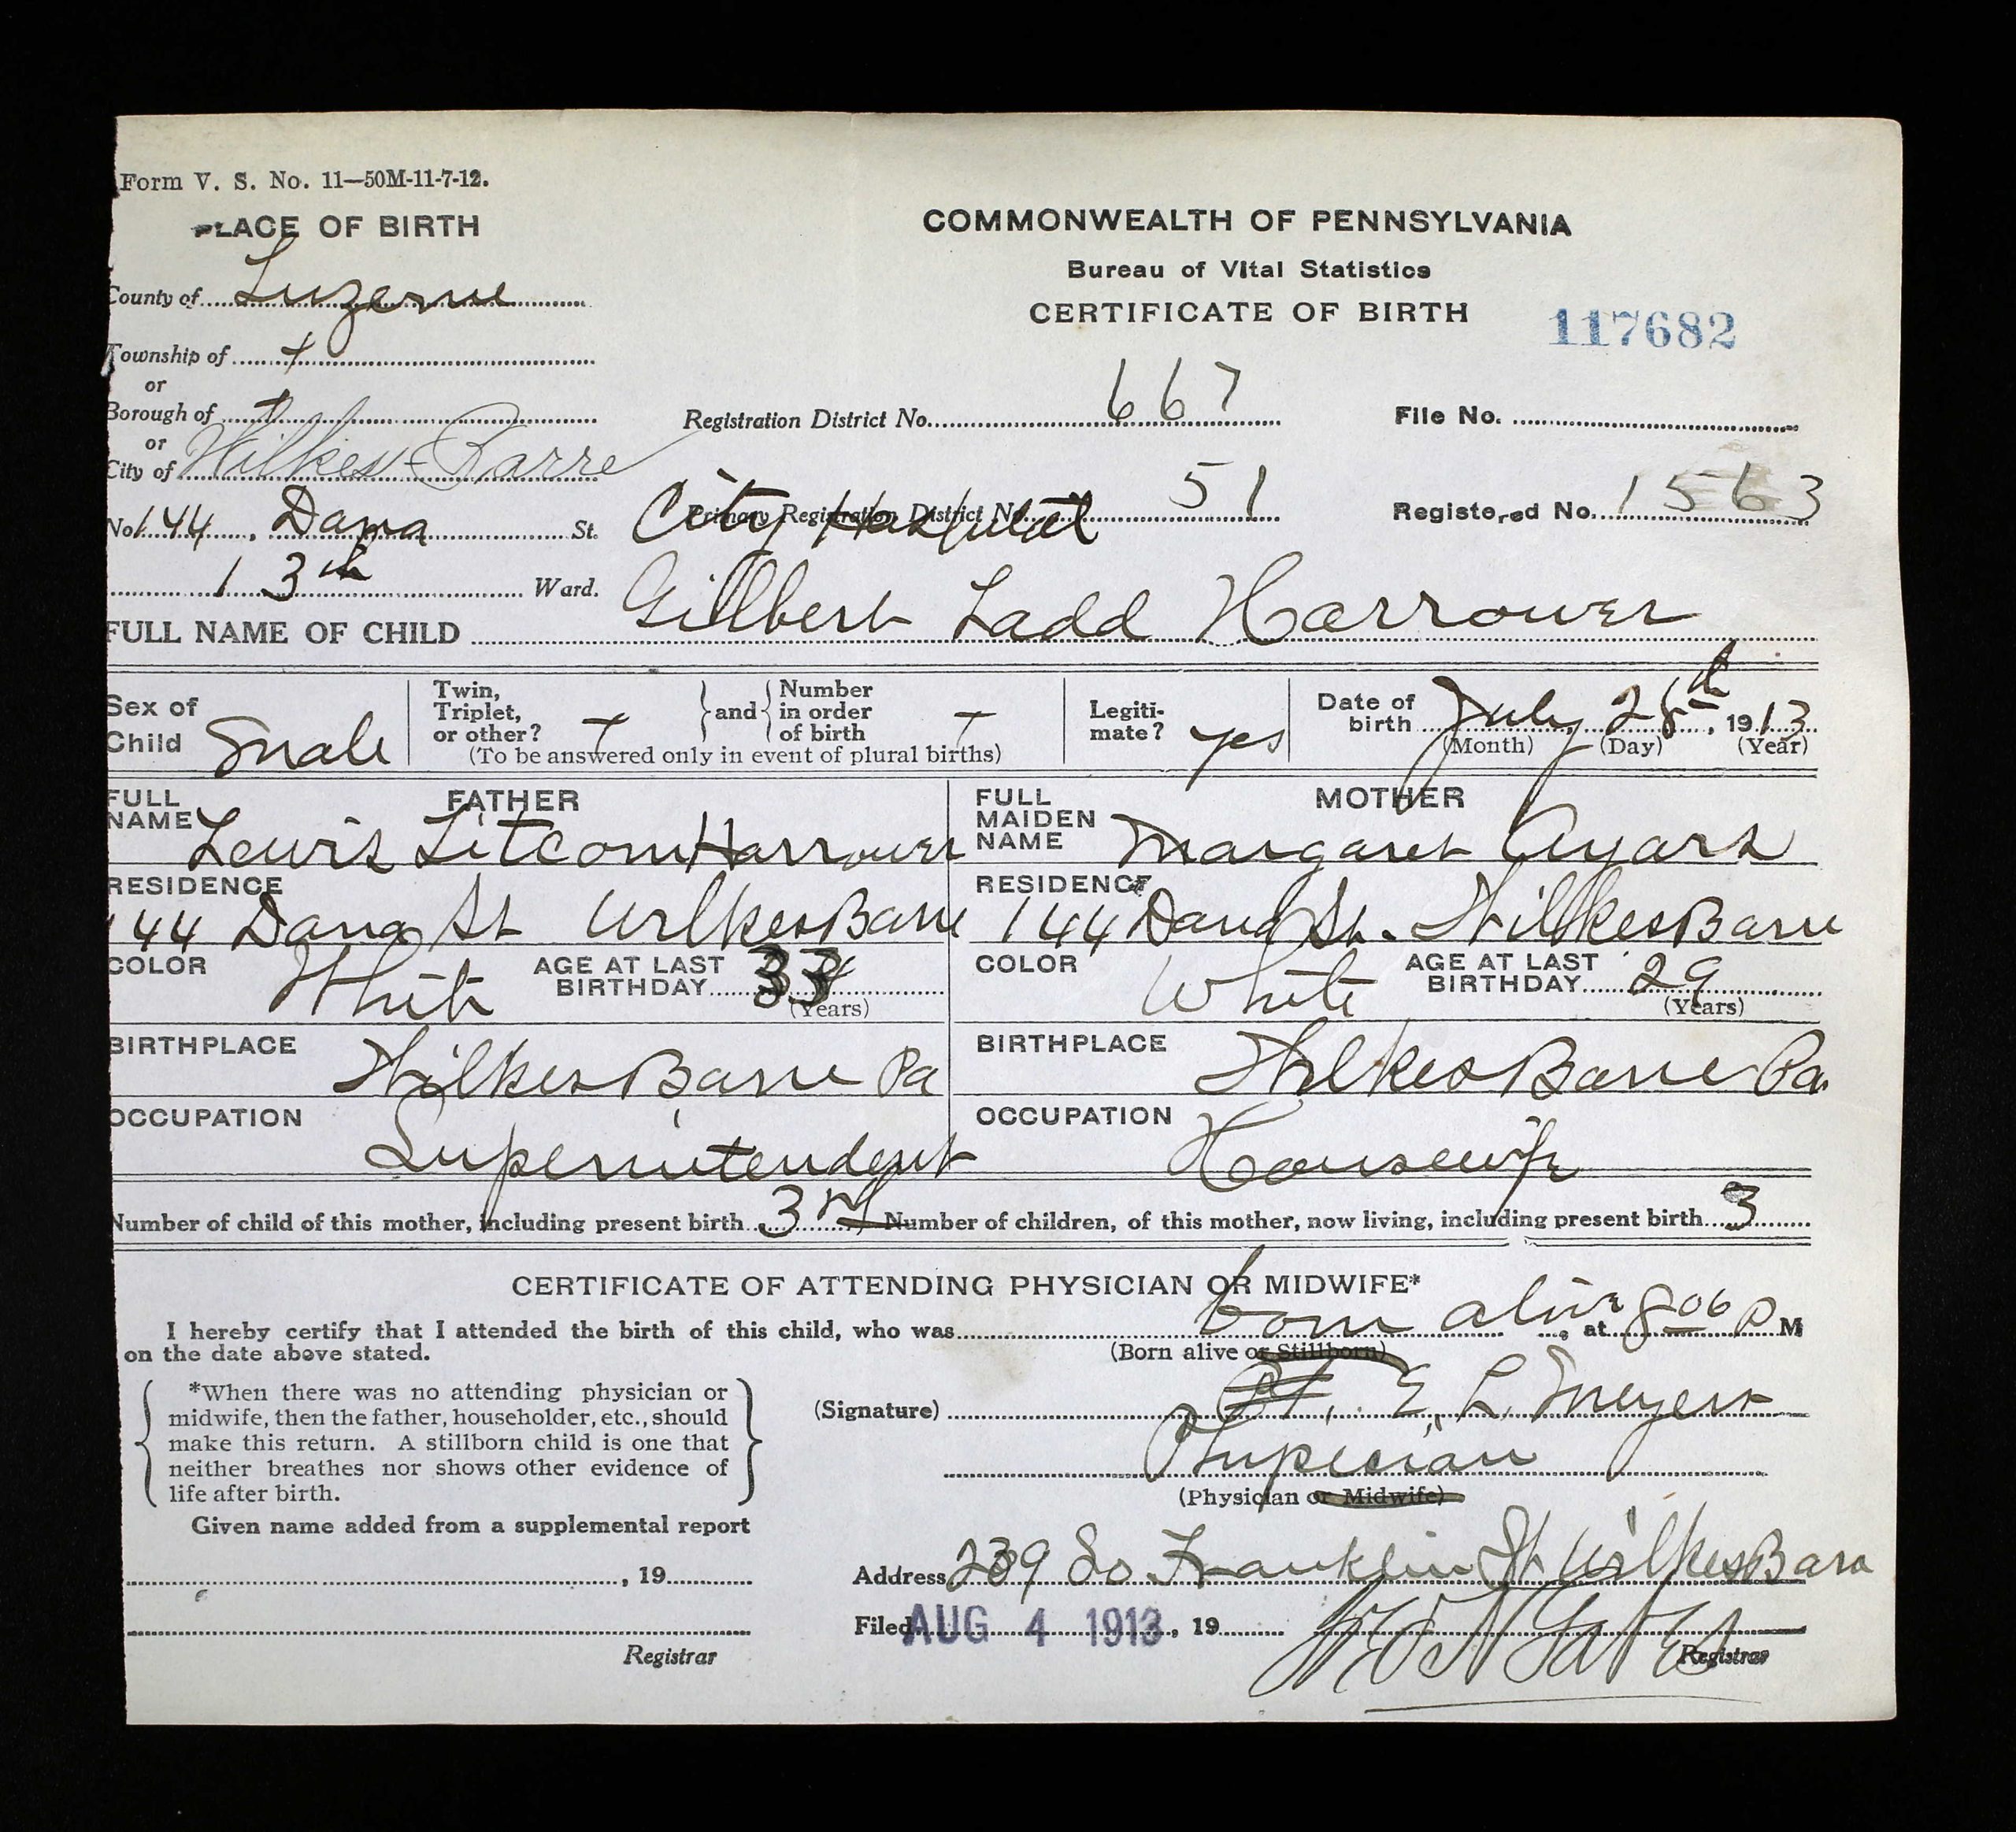 Form V. S. No. 11—50M-11-7-12.
PLACE OF BIRTH
County of Luzerne
Township of +
or
Borough of +
or
City of Wilkes-Barre
No. 144, Dana St.
13th Ward.
COMMONWEALTH OF PENNSYLVANIA
Bureau of Vital Statistics
CERTIFICATE OF BIRTH
117682
Registration District No. 667
File No.
City Hospital
Primary Registration District No. 51
Registered No. 1563
FULL NAME OF CHILD Gillbert Ladd Harrower
Sex of Child male
Twin, Triplet, or other? + and Number in order of birth +
(To be answered only in event of plural births)
Legiti-mate? yes
Date of birth July 28th, 1913
(Month) (Day) (Year)
FATHER
FULL NAME Lewis Harrower
RESIDENCE 144 Dana St Wilkes Barre
COLOR White
AGE AT LAST BIRTHDAY
(Years)
BIRTHPLACE Wilkes Barre Pa
OCCUPATION Superintendent
MOTHER
FULL MAIDEN NAME Margaret Ayars
RESIDENCE 144 Dana St. Wilkes Barre
COLOR White
AGE AT LAST BIRTHDAY 29
(Years)
BIRTHPLACE Wilkes Barre Pa.
OCCUPATION Housewife
Number of child of this mother, including present birth 3rd Number of children, of this mother, now living, including present birth 3
CERTIFICATE OF ATTENDING PHYSICIAN OR MIDWIFE*
I hereby certify that I attended the birth of this child, who was born alive, at 8 06 P M
on the date above stated.
(Born alive or Stillborn)
*When there was no attending physician or
midwife, then the father, householder, etc., should
make this return. A stillborn child is one that
neither breathes nor shows other evidence of
life after birth.
(Signature) E. L. Meyers
Physician
(Physician or Midwife)
Given name added from a supplemental report
, 19
Registrar
Address 239 So Franklin St Wilkes Barre
Filed AUG 4 1913, 19
Registrar